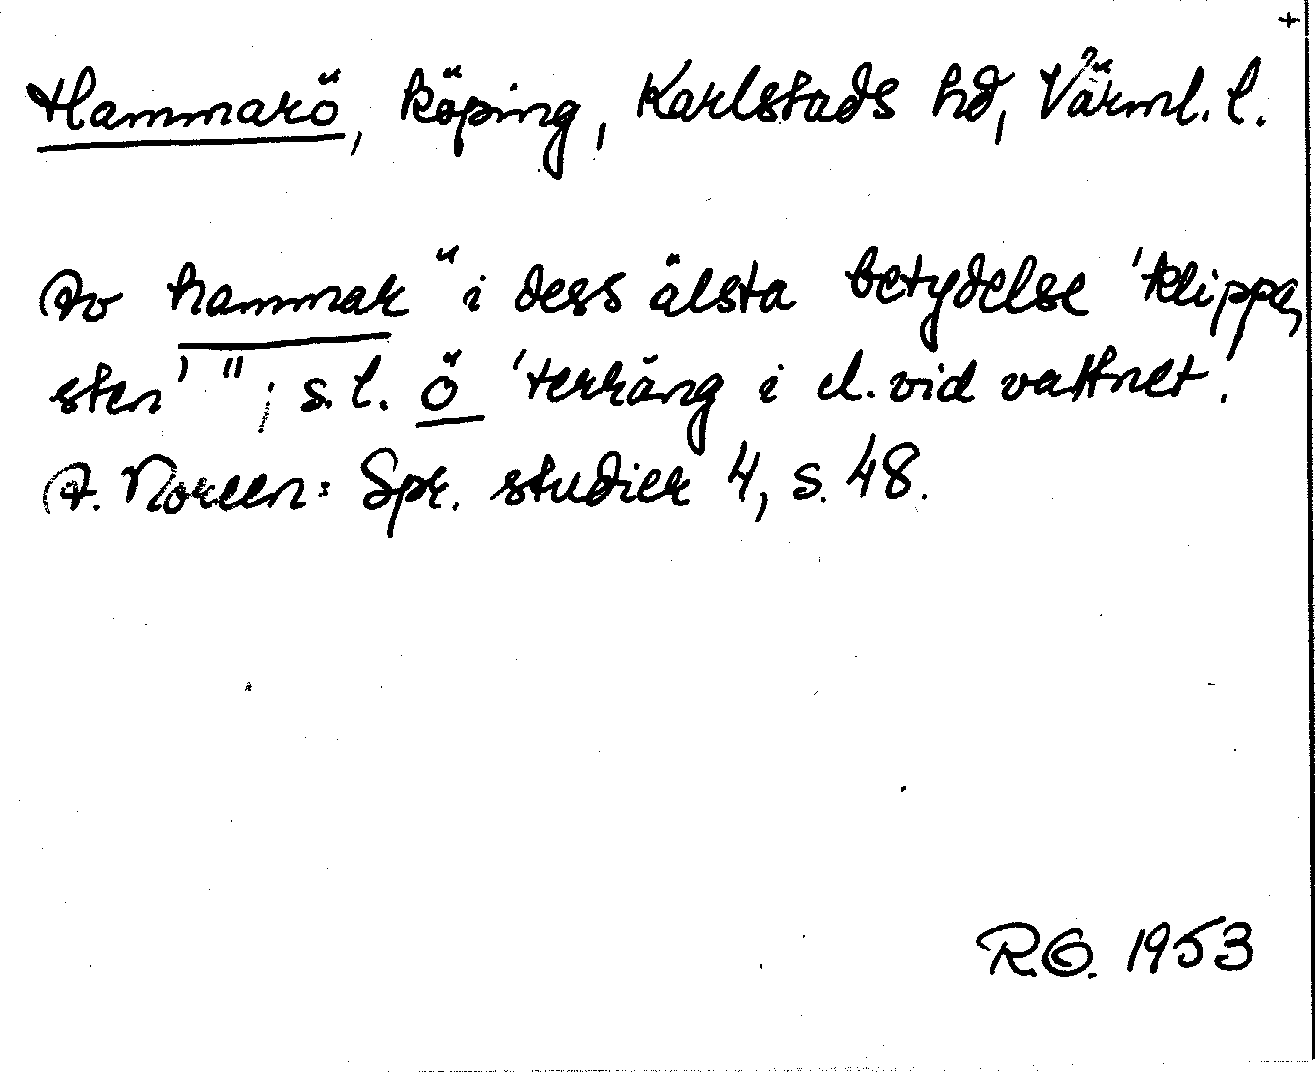 +
Hammarö, köping, Karlstads hd, Värml. l.
Av hammar "i dess älsta betydelse 'klippa,
sten' "; s.l. ö 'terräng i el. vid vattnet'.
A. Noreen: Spr. studier 4, s. 48.
RO. 1953